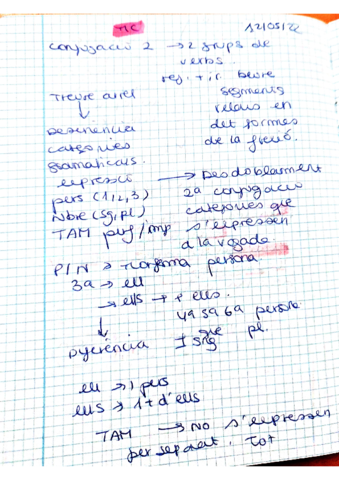 TIC
12/05/22
conjugació 2 → 2 grups de
verbs.
reg. + ir. beure
Treure arrel
segments
↓
relatius en
Desinència
det formes
categories
de la flexió.
gramaticals.
expressió → Desdoblament
pers (1,2,3) 2a conjugació
Nbre (sg, pl) categories que
TAM perf/imp s'expressen
a la vegada
P/N → morfema persona
3a → ell
→ ells → + ells.
4a 5a 6a persona
↓ que pl.
Diferència ± sing
ell → 1 pers
ells → 1 + d'ells
TAM → NO s'expressen
per separat. Tot